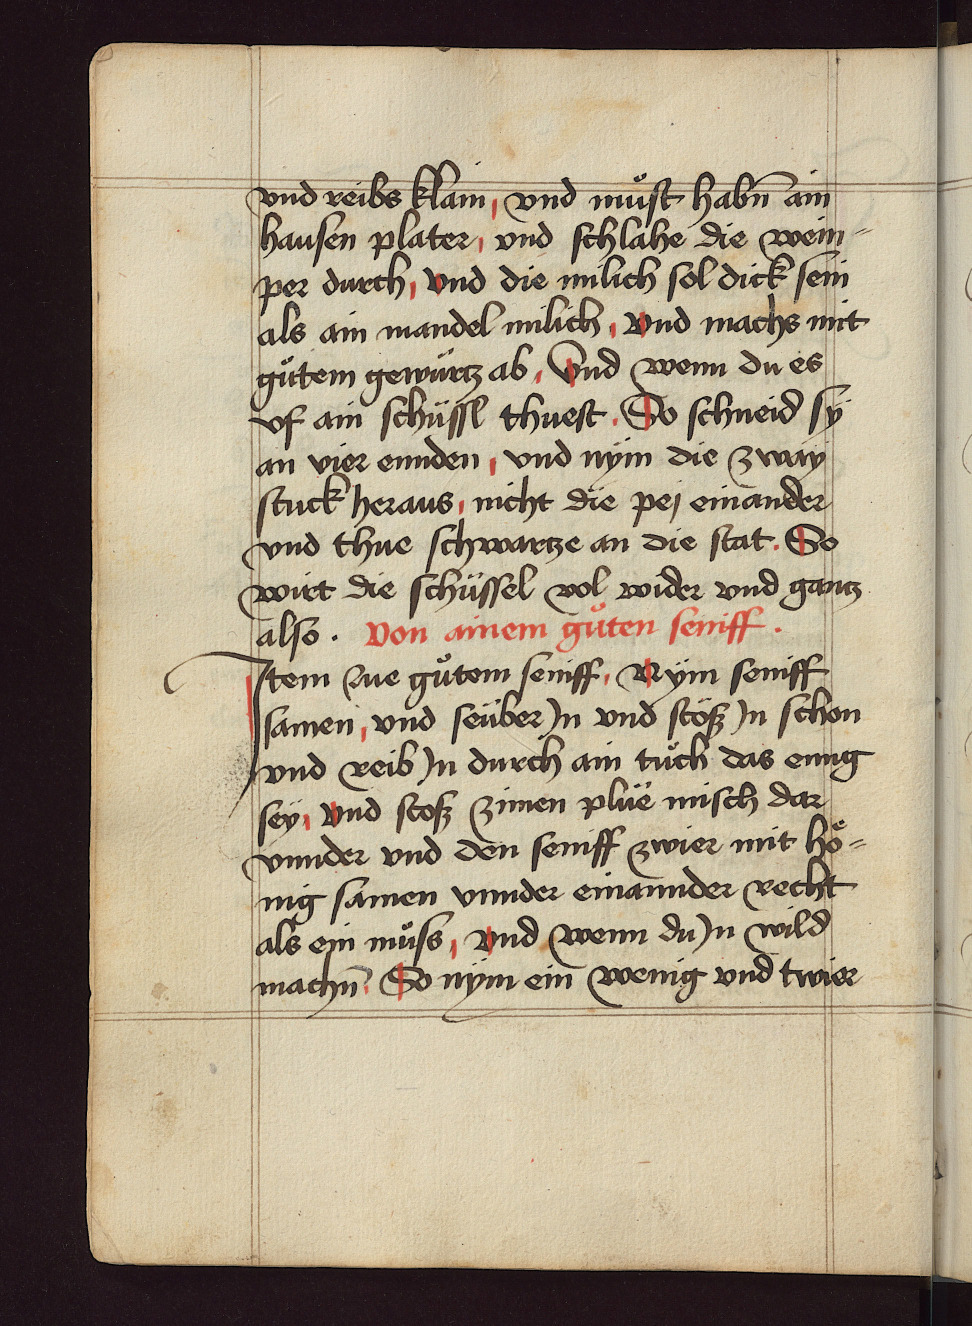 vnd reibs klain, vnd můst habn̄ ain
hausen plater, vnd schlahe die wein-
per durch, vnd die milich sol dick sein
als ain mandel milich, vnd machs mit
gůtem gewürtz ab, Vnd wenn du es
vf ain schüssl thuest. So schneid sÿ
an vier ennden, vnd nÿm die zwaÿ
stuck heraus, nicht die pej einander
vnd thue schwartze an die stat. So
wirt die schüssel vol wider vnd gantz
also. Von ainem gůten seniff.
Item zue gůtem seniff, Nÿm seniff
samen, vnd seüber Jn vnd stöß Jn schon
vnd reib Jn durch ain tůch das ennig
seÿ, vnd stoß zimen plüe misch dar
vnnder vnd den seniff zwier mit hö-
nig samen vnnder einannder recht
als ein můss, vnd wenn du Jn wild
machn̄. So nÿm ein wenig vnd twier